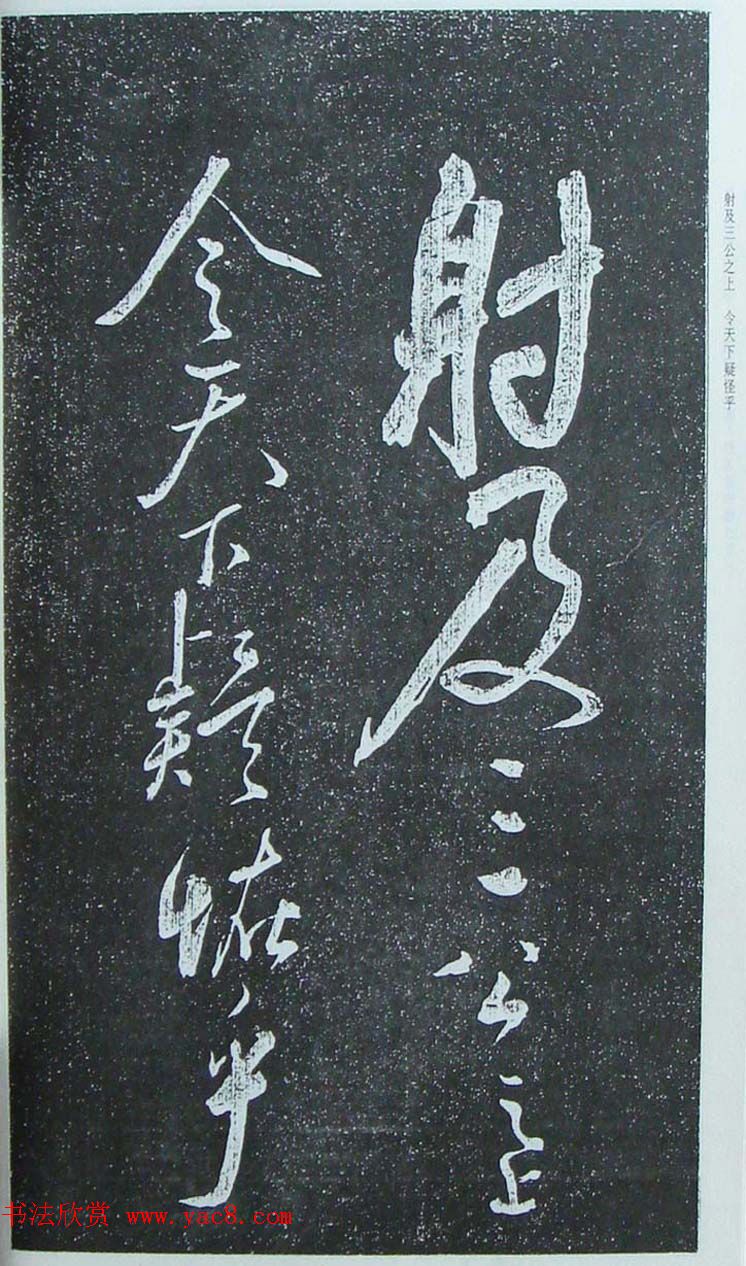 射及三公之上
令天下疑恠乎
射及三公之上 令天下疑怪乎
书法欣赏 www.yac8.com